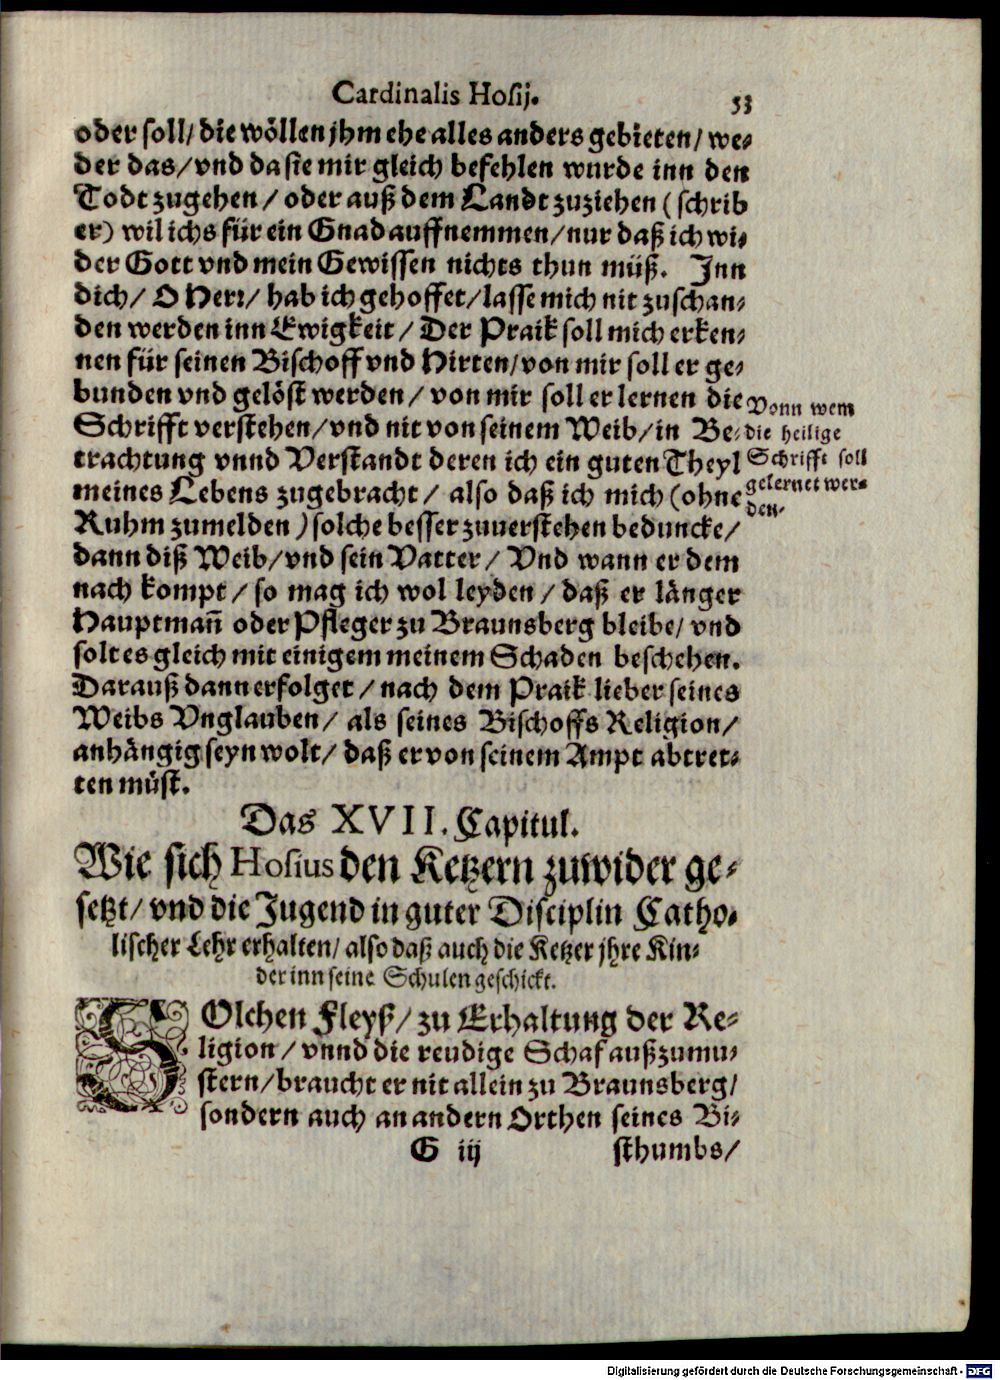 Cardinalis Hosij.
53
oder soll/ die wöllen jhm ehe alles anders gebieten/ we-
der das/ vnd da sie mir gleich befehlen wurde inn den
Todt zugehen / oder auß dem Landt zuziehen ( schrib
er) wil ichs für ein Gnad auffnemmen/ nur daß ich wi-
der Gott vnd mein Gewissen nichts thun müß. Inn
dich/ O Herr/ hab ich gehoffet/ lasse mich nit zuschan-
den werden inn Ewigkeit/ Der Praik soll mich erken-
nen für seinen Bischoff vnd Hirten/ von mir soll er ge-
bunden vnd gelöst werden / von mir soll er lernen die
Schrifft verstehen/ vnd nit von seinem Weib/ in Be-
trachtung vnnd Verstandt deren ich ein guten Theyl
meines Lebens zugebracht/ also daß ich mich (ohne
Ruhm zumelden ) solche besser zuuerstehen beduncke/
dann diß Weib/ vnd sein Vatter/ Vnd wann er dem
nach kompt/ so mag ich wol leyden / daß er länger
Hauptmañ oder Pfleger zu Braunsberg bleibe/ vnd
solt es gleich mit einigem meinem Schaden beschehen.
Darauß dann erfolget / nach dem Praik lieber seines
Weibs Vnglauben/ als seines Bischoffs Religion/
anhängig seyn wolt/ daß er von seinem Ampt abtret-
ten müst.
Vonn wem
die heilige
Schrifft soll
gelernet wer-
den.
Das XVII. Capitul.
Wie sich Hosius den Ketzern zuwider ge-
setzt/ vnd die Jugend in guter Disciplin Catho-
lischer Lehr erhalten/ also daß auch die Ketzer jhre Kin-
der inn seine Schulen geschickt.
SOlchen Fleyß/ zu Erhaltung der Re-
ligion / vnnd die reudige Schaf außzumu-
stern/ braucht er nit allein zu Braunsberg/
sondern auch an andern Orthen seines Bi-
G iij
sthumbs/
Digitalisierung gefördert durch die Deutsche Forschungsgemeinschaft - DFG